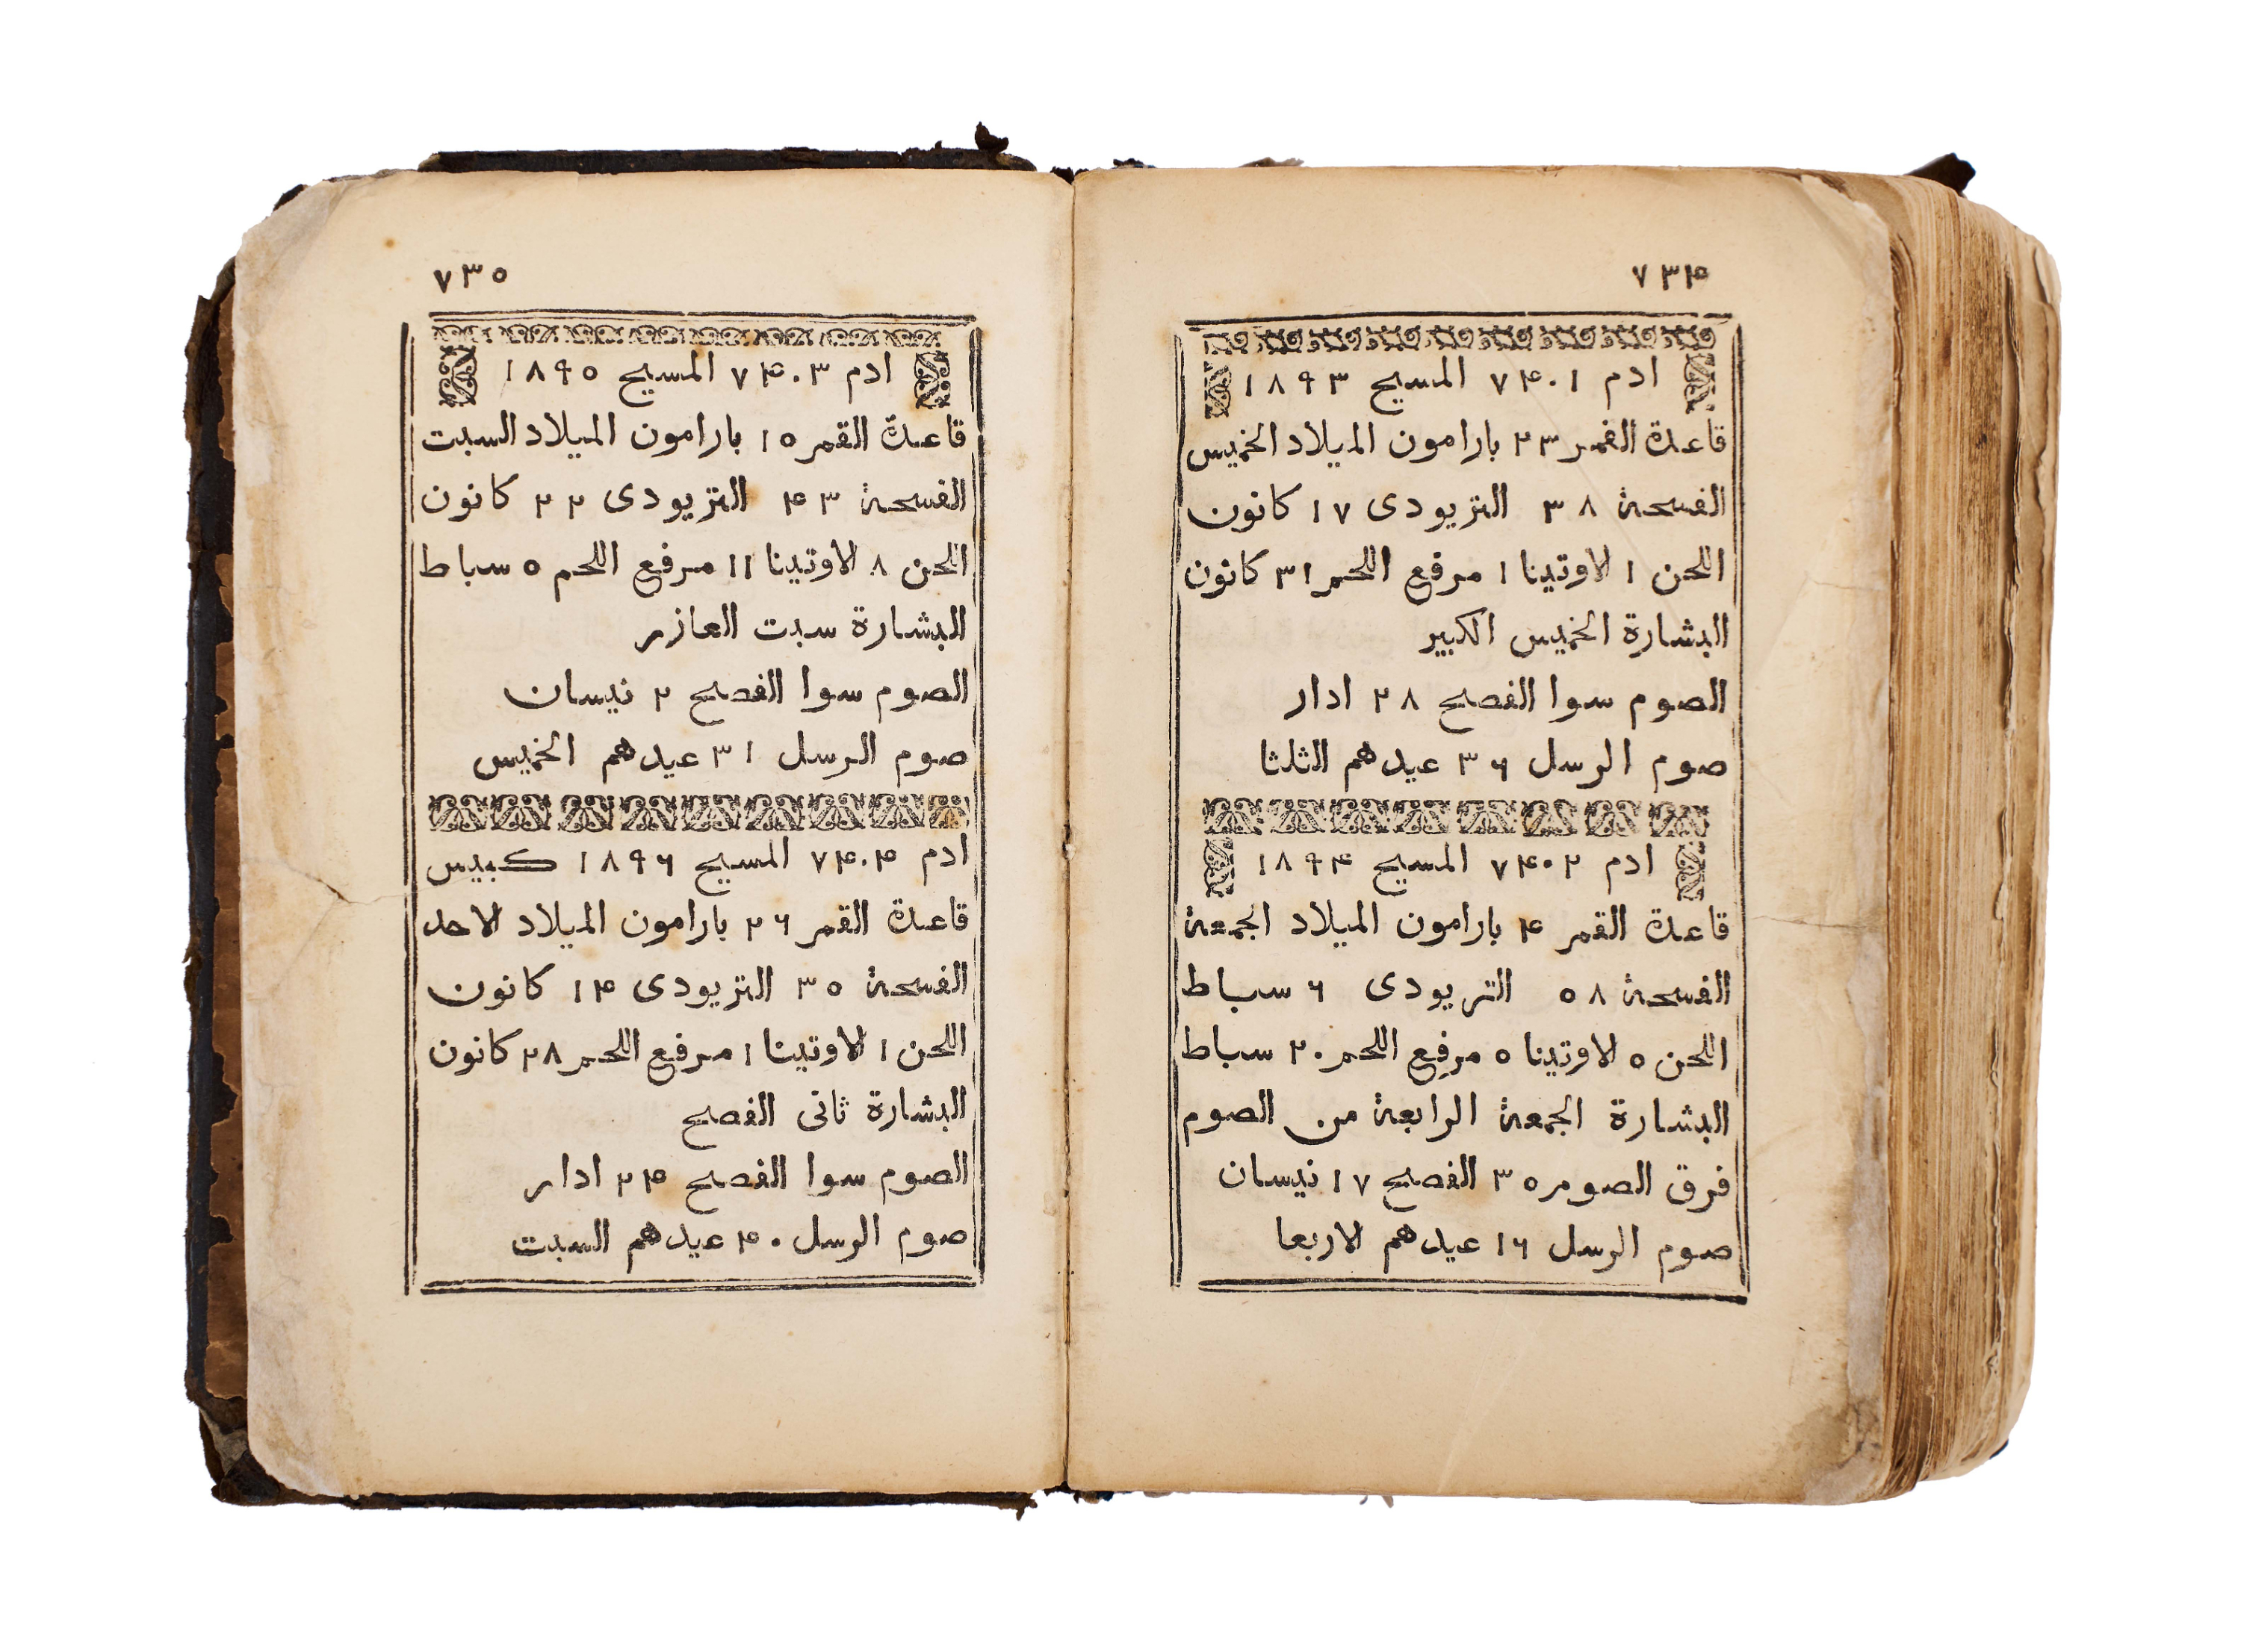 ٧٣٤
ادم ٧٤٠١ المسيح ١٨٩٣
قاعدة القمر ٢٣ بارامون الميلاد الخميس
الفسحة ٣٨ التريودى ١٧ كانون
اللحن ١ الاوتينا ١ مرفع اللحم ٣١ كانون
البشارة الخميس الكبير
الصوم سوا الفصح ٢٨ ادار
صوم الرسل ٣٦ عيدهم الثلثا
ادم ٧٤٠٢ المسيح ١٨٩٤
قاعدة القمر ٤ بارامون الميلاد الجمعة
الفسحة ٥٨ التريودى ٦ سباط
اللحن ٥ الاوتينا ٥ مرفع اللحم ٢٠ سباط
البشارة الجمعة الرابعة من الصوم
فرق الصوم ٣٥ الفصح ١٧ نيسان
صوم الرسل ١٦ عيدهم الاربعا
٧٣٥
ادم ٧٤٠٣ المسيح ١٨٩٥
قاعدة القمر ١٥ بارامون الميلاد السبت
الفسحة ٤٣ التريودى ٢٢ كانون
اللحن ٨ الاوتينا ١١ مرفع اللحم ٥ سباط
البشارة سبت العازر
الصوم سوا الفصح ٢ نيسان
صوم الرسل ٣١ عيدهم الخميس
ادم ٧٤٠٤ المسيح ١٨٩٦ كبيس
قاعدة القمر ٢٦ بارامون الميلاد الاحد
الفسحة ٣٥ التريودى ١٤ كانون
اللحن ١ الاوتينا ١ مرفع اللحم ٢٨ كانون
البشارة ثانى الفصح
الصوم سوا الفصح ٢٤ ادار
صوم الرسل ٤٠ عيدهم السبت